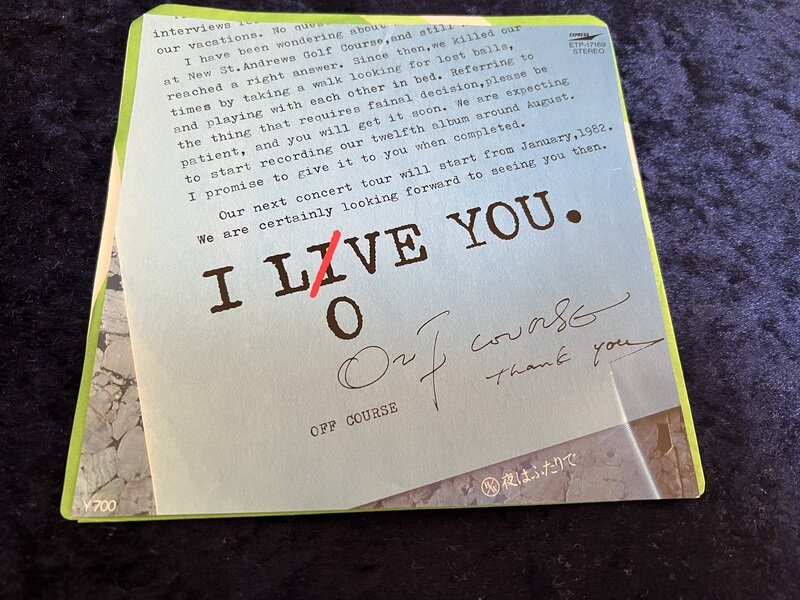 interviews
our vacations. No
I have been wondering about
at New St.Andrews Golf Course,and still
reached a right answer. Since then,we killed our
times by taking a walk looking for lost balls,
and playing with each other in bed. Referring to
the thing that requires fainal decision,please be
patient, and you will get it soon. We are expecting
to start recording our twelfth album around August.
I promise to give it to you when completed.
Our next concert tour will start from January,1982.
We are certainly looking forward to seeing you then.
I LIVE YOU.
O
Off course
thank you
OFF COURSE
B/W 夜はふたりで
¥700
EXPRESS
ETP-17169
STEREO